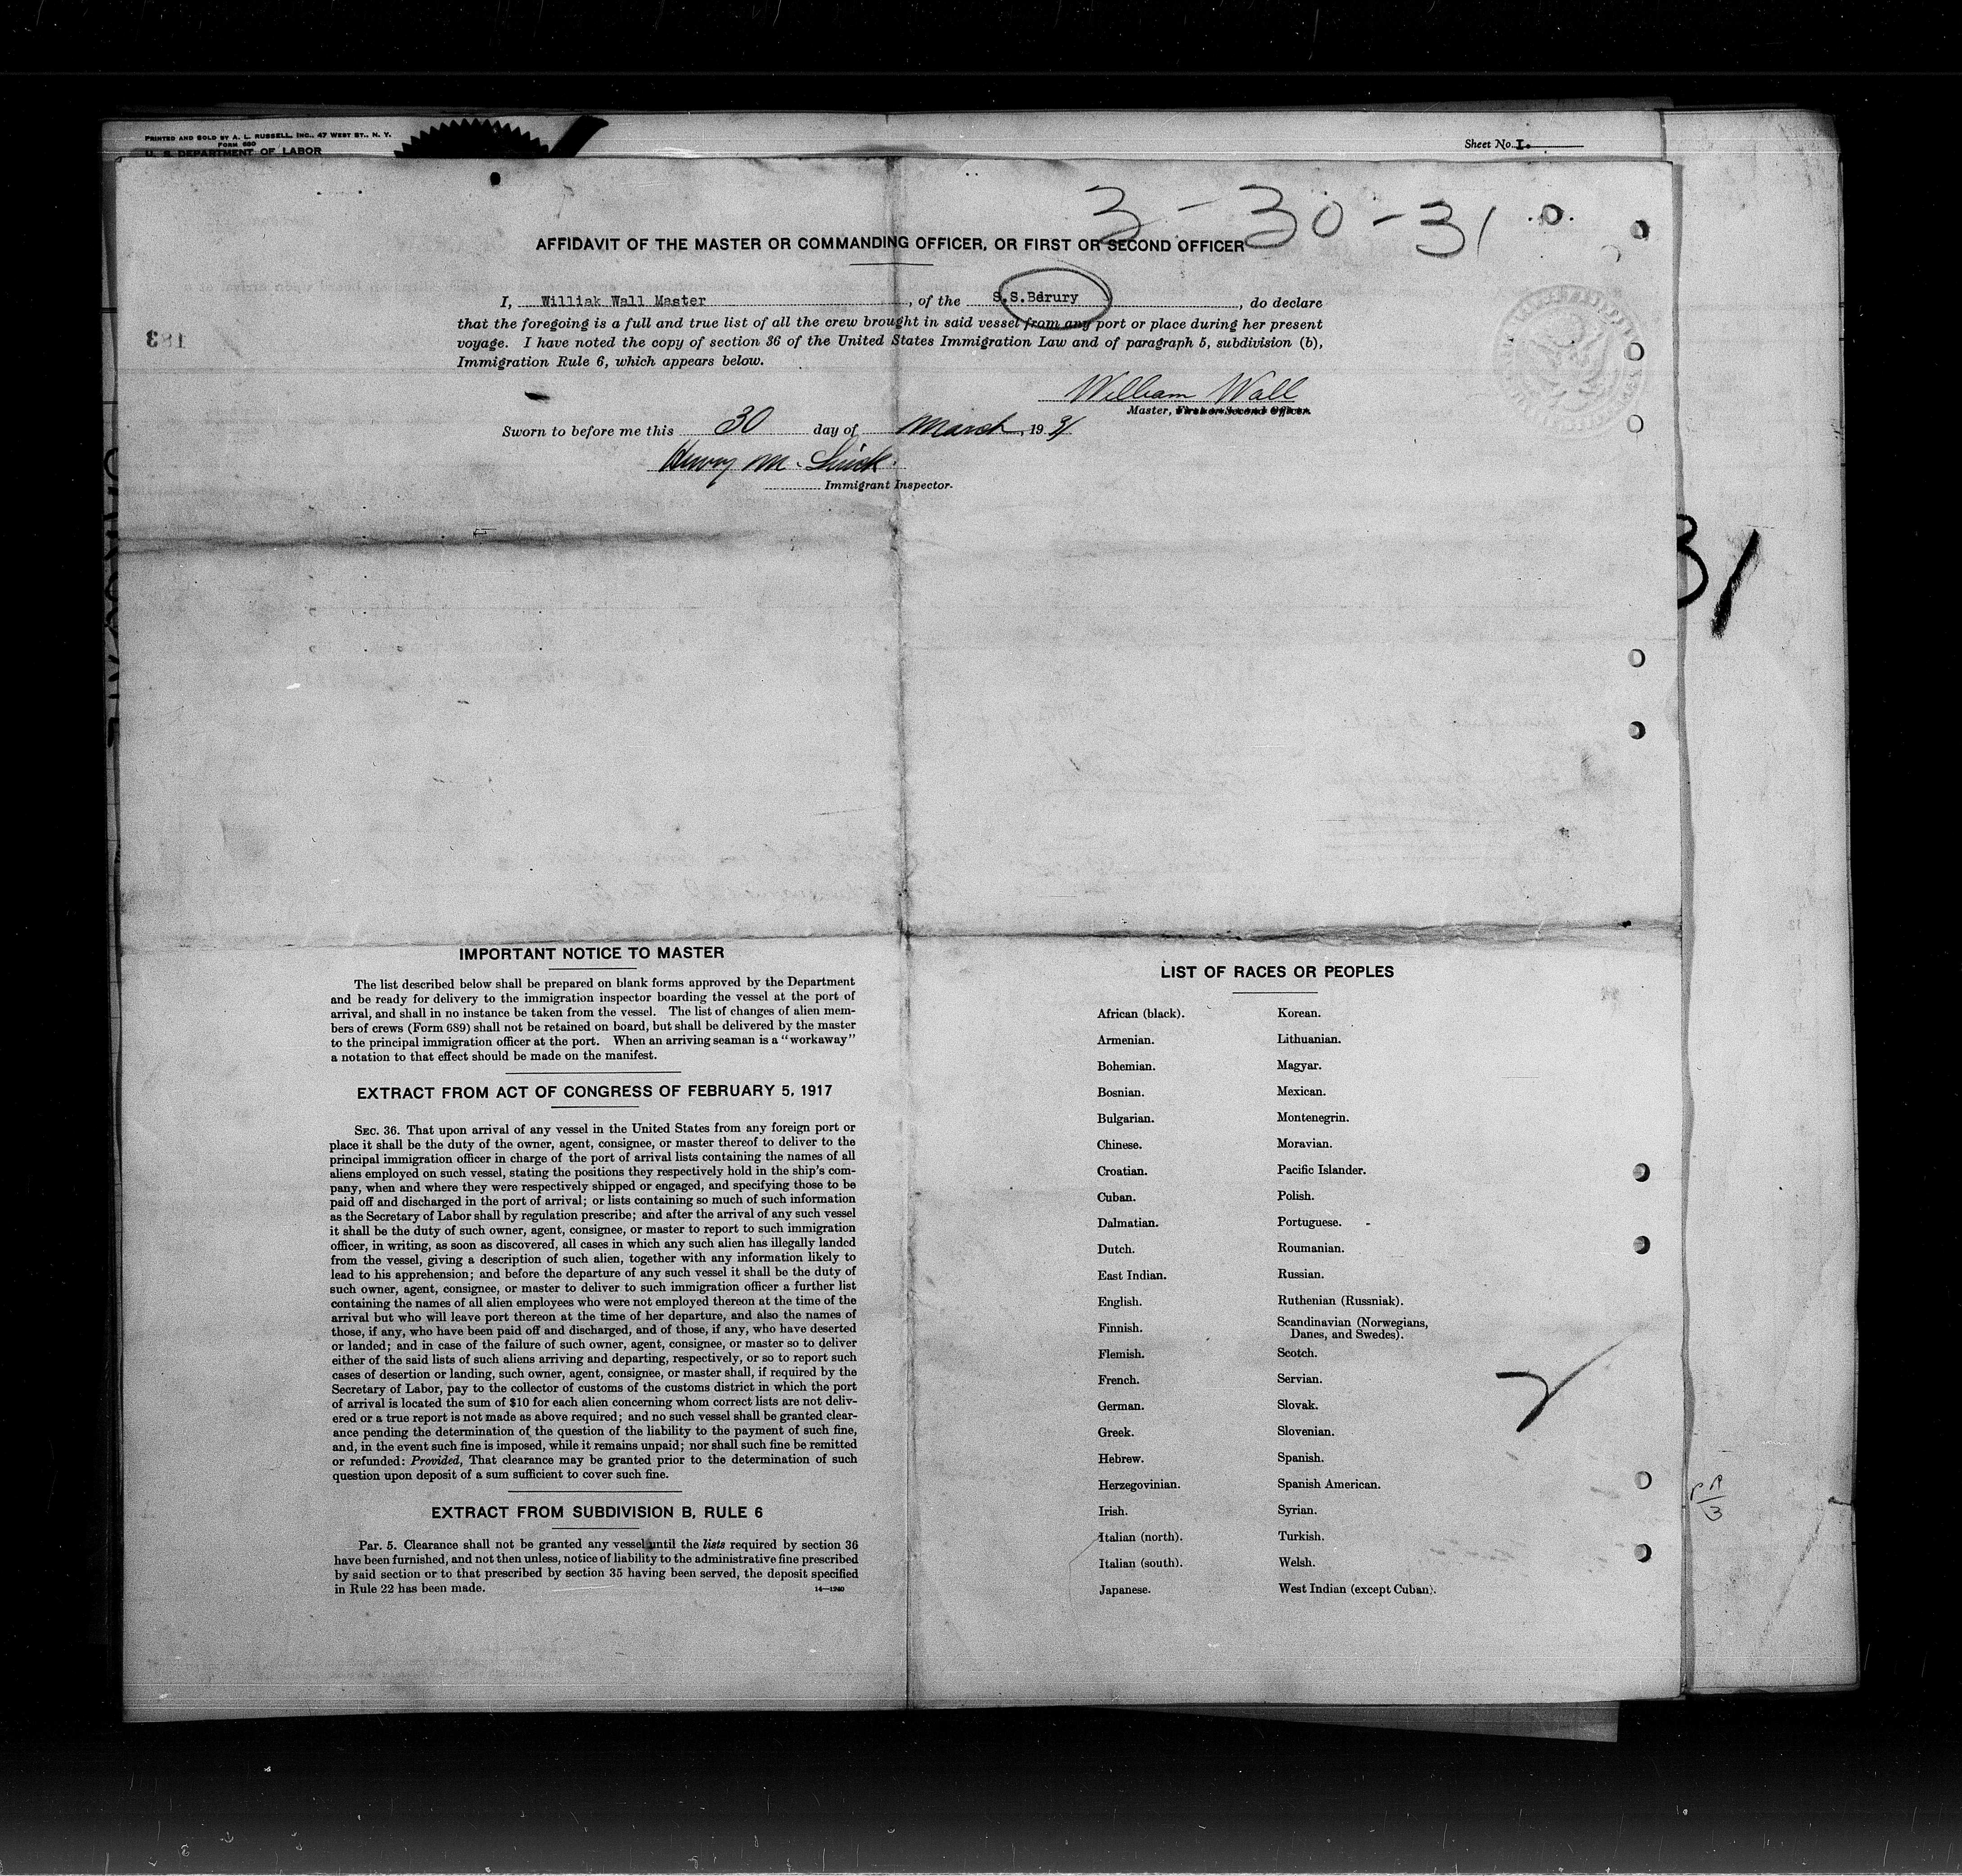 PRINTED AND SOLD BY A. L. RUSSELL, INC., 47 WEST ST., N. Y.
FORM 680
U. S. DEPARTMENT OF LABOR
Sheet No. I.
3-30-31
AFFIDAVIT OF THE MASTER OR COMMANDING OFFICER, OR FIRST OR SECOND OFFICER
I, Williak Wall Master, of the S.S. Bdrury, do declare
that the foregoing is a full and true list of all the crew brought in said vessel from any port or place during her present
voyage. I have noted the copy of section 36 of the United States Immigration Law and of paragraph 5, subdivision (b),
Immigration Rule 6, which appears below.
183
William Wall
Master, First or Second Officer.
Sworn to before me this 30 day of March, 1931
Henry M.
Immigrant Inspector.
31
IMPORTANT NOTICE TO MASTER
The list described below shall be prepared on blank forms approved by the Department
and be ready for delivery to the immigration inspector boarding the vessel at the port of
arrival, and shall in no instance be taken from the vessel. The list of changes of alien mem-
bers of crews (Form 689) shall not be retained on board, but shall be delivered by the master
to the principal immigration officer at the port. When an arriving seaman is a "workaway"
a notation to that effect should be made on the manifest.
EXTRACT FROM ACT OF CONGRESS OF FEBRUARY 5, 1917
SEC. 36. That upon arrival of any vessel in the United States from any foreign port or
place it shall be the duty of the owner, agent, consignee, or master thereof to deliver to the
principal immigration officer in charge of the port of arrival lists containing the names of all
aliens employed on such vessel, stating the positions they respectively hold in the ship's com-
pany, when and where they were respectively shipped or engaged, and specifying those to be
paid off and discharged in the port of arrival; or lists containing so much of such information
as the Secretary of Labor shall by regulation prescribe; and after the arrival of any such vessel
it shall be the duty of such owner, agent, consignee, or master to report to such immigration
officer, in writing, as soon as discovered, all cases in which any such alien has illegally landed
from the vessel, giving a description of such alien, together with any information likely to
lead to his apprehension; and before the departure of any such vessel it shall be the duty of
such owner, agent, consignee, or master to deliver to such immigration officer a further list
containing the names of all alien employees who were not employed thereon at the time of the
arrival but who will leave port thereon at the time of her departure, and also the names of
those, if any, who have been paid off and discharged, and of those, if any, who have deserted
or landed; and in case of the failure of such owner, agent, consignee, or master so to deliver
either of the said lists of such aliens arriving and departing, respectively, or so to report such
cases of desertion or landing, such owner, agent, consignee, or master shall, if required by the
Secretary of Labor, pay to the collector of customs of the customs district in which the port
of arrival is located the sum of $10 for each alien concerning whom correct lists are not deliv-
ered or a true report is not made as above required; and no such vessel shall be granted clear-
ance pending the determination of the question of the liability to the payment of such fine,
and, in the event such fine is imposed, while it remains unpaid; nor shall such fine be remitted
or refunded: Provided, That clearance may be granted prior to the determination of such
question upon deposit of a sum sufficient to cover such fine.
EXTRACT FROM SUBDIVISION B, RULE 6
Par. 5. Clearance shall not be granted any vessel until the lists required by section 36
have been furnished, and not then unless, notice of liability to the administrative fine prescribed
by said section or to that prescribed by section 35 having been served, the deposit specified
in Rule 22 has been made. 14—1240
LIST OF RACES OR PEOPLES
African (black). Korean.
Armenian. Lithuanian.
Bohemian. Magyar.
Bosnian. Mexican.
Bulgarian. Montenegrin.
Chinese. Moravian.
Croatian. Pacific Islander.
Cuban. Polish.
Dalmatian. Portuguese.
Dutch. Roumanian.
East Indian. Russian.
English. Ruthenian (Russniak).
Finnish. Scandinavian (Norwegians,
Danes, and Swedes).
Flemish. Scotch.
French. Servian.
German. Slovak.
Greek. Slovenian.
Hebrew. Spanish.
Herzegovinian. Spanish American.
Irish. Syrian.
Italian (north). Turkish.
Italian (south). Welsh.
Japanese. West Indian (except Cuban).